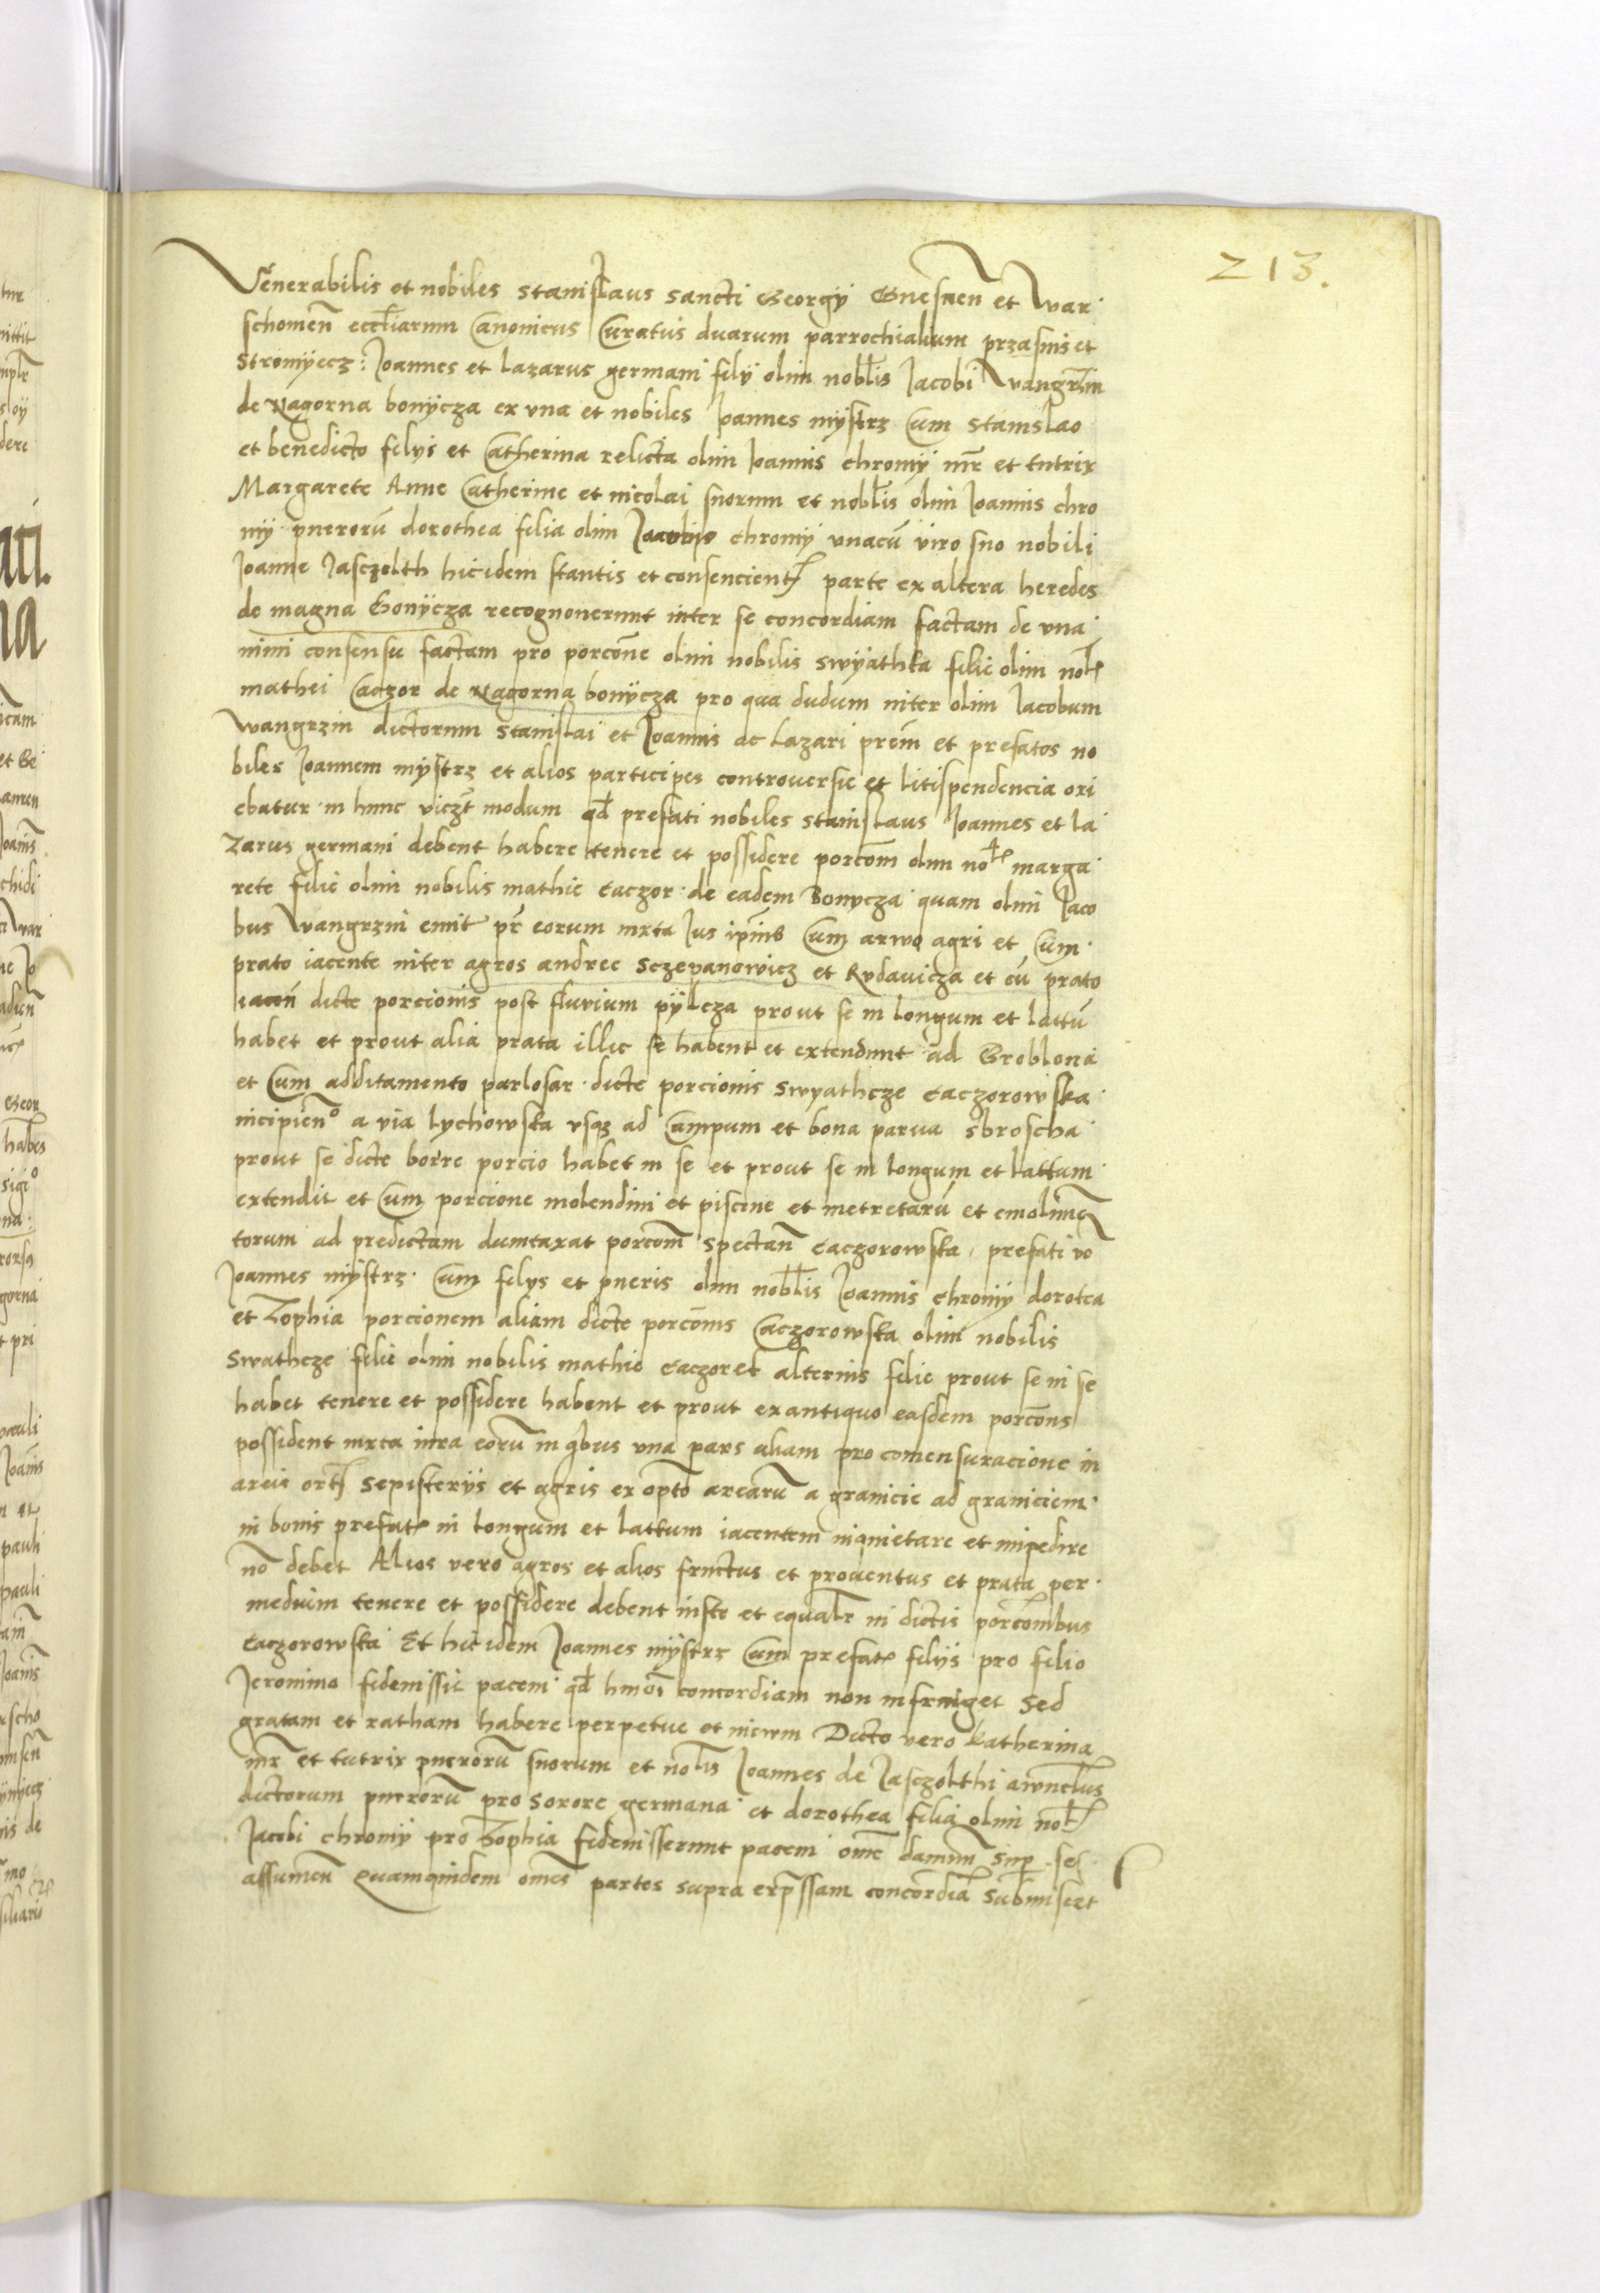 213.
Venerabilis et nobiles Stanislaus sancti Georgÿ Gnesnen̄ et War
schomen̄ ecclīarum Canonicus Curatus duarum parrochialium przasnis et
Stromÿecz: Joannes et Lazarus germani filÿ olim nobl̄is Jacobi Wangrzin
de Nagorna bonÿcza ex vna et nobiles Joannes mÿstrz Cum Stanislao
et benedicto filÿs et Catherina relicta olim Joannis chromÿ mr̄ et tutrix
Margarete Anne Catherine et nicolai suorum et nobl̄is olim Joannis chro
mÿ puerorū dorothea filia olim Jacobi chromÿ vnacū viro suo nobili
Joanne Jasczolth hic idem stantis et consencient parte ex altera heredes
de magna Bonÿcza recognouerunt inter se concordiam factam de vna
nimi consensu factam pro porcōne olim nobilis Swÿathka filie olim nol̄
mathei Caczor de Nagorna bonÿcza pro qua dudum inter olim Jacobum
Wangrzin dictorum Stanislai et Joannis ac Lazari prēm et prefatos no
biles Joannem mÿstrz et alios participes controuersie et litispendencia ori
ebatur in hunc viczt modum qd̄ prefati nobiles Stanislaus Joannes et la
zarus germani debent habere tenere et possidere porcōm olim nol̄ marga
rete filie olim nobilis mathie Caczor de eadem Bonycza quam olim Jaco
bus Wangrzin emit pr̄ eorum iuxta Jus ip̄ius Cum arwo agri et Cum
prato iacente inter agros andree Sczepanowicz et Rudavicza et cū prato
iacen̄ dicte porcionis post fluvium pÿlcza prout se in longum et lattū
habet et prout alia prata illic se habent et extendunt ad Groblona
et Cum additamento parlosar dicte porcionis Swyathcze Caczorowska
incipien̄o a via Lychowska vsq3 ad Campum et bona parua Sbroscha
prout se dicte borre porcio habet in se et prout se in longum et lattum
extendit et Cum porcione molendini et piscine et metretarū et emolimen
torum ad predictam dumtaxat porcōm spectan̄ Caczorowska prefati vo
Joannes mÿstrz Cum filys et pueris olim nobl̄is Joannis chromÿ dorotea
et Zophia porcionem aliam dicte porcōnis Caczorowska olim nobilis
Swathcze filie olim nobilis mathie Caczor et alterius filie prout se in se
habet tenere et possidere habent et prout ex antiquo easdem porcōns
possident iuxta iura eorū in qbus vna pars aliam pro comensuracione in
areis ort sepisterÿs et agris ex opto arearū a granicie ad graniciem
in bonis prefat in longum et lattum iacentem inquietare et impedire
nō debet Alios vero agros et alios fructus et prouentus et prata per
medium tenere et possidere debent iuste et equalr in dictis porcōnibus
Caczorowska Et hic idem Joannes mÿstrz Cum prefat filÿs pro filio
Jeronimo fideiussit pacem qd̄ hmōi concordiam non infringet sed
gratam et ratham habere perpetue et in ewm Dicto vero Katherina
mr̄ et tutrix puerorū suorum et nol̄is Joannes de Jasczolthi awnclus
dictorum puerorū pro sorore germana et dorothea filia olim nol̄
Jacobi chromÿ pro Zophia fideiusserunt pacem om̄e damnū sup se
assumen̄ Quamquidem om̄es partes supra exp̄ssam concordiā submiserūt